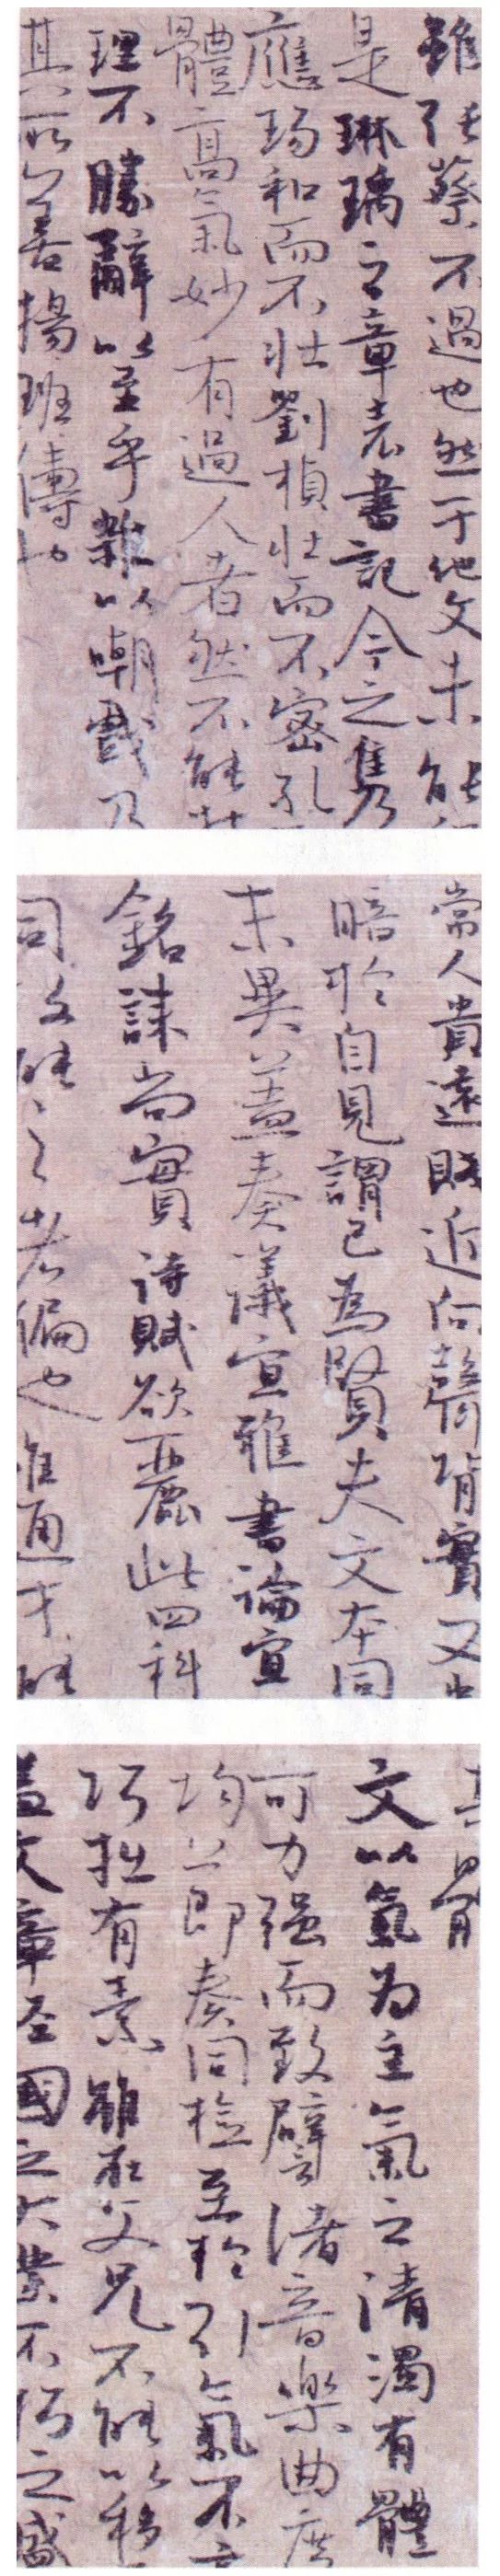 雖張蔡不過也然于他文未能
是琳瑀之章表書記今之雋
應瑒和而不壯劉楨壯而不密孔
體高氣妙有過人者然不能
理不勝辭以至乎雜以嘲戲及
其所善揚班儔也
常人貴遠賤近向聲背實又
暗於自見謂己為賢夫文本同
末異蓋奏議宜雅書論宜
銘誄尚實詩賦欲麗此四科
同故能之者偏也唯通才能
其體
文以氣為主氣之清濁有體
可力强而致譬諸音樂曲度
均節奏同檢至於引氣不
巧拙有素雖在父兄不能以移
蓋文章經國之大業不朽之盛